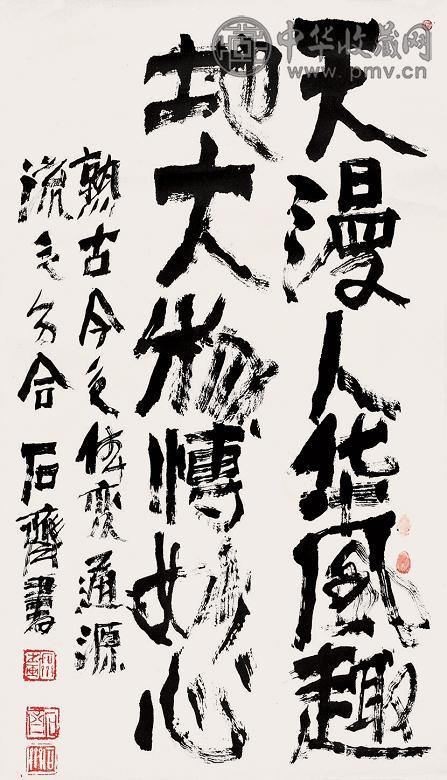 中华收藏网
www.pmv.cn
天漫人华风趣
地大物愽妙心
熟古今之体变通源
流之分合 石齊書